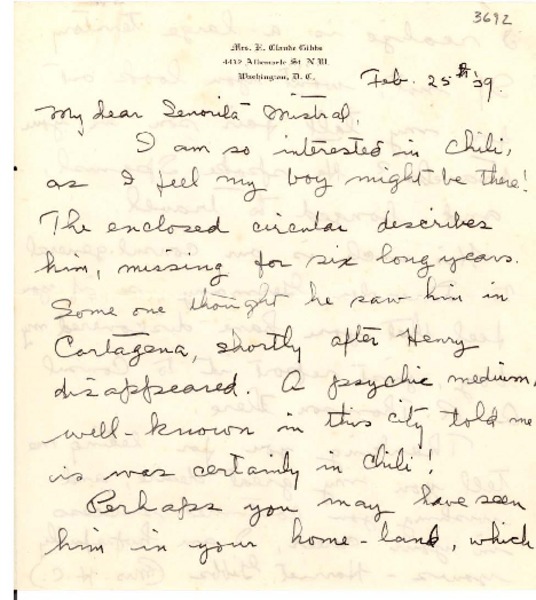 3692
Mrs. H. Claude Gibbs
4412 Albemarle St. N.W.
Washington, D. C.
Feb. 25th '39.
My dear Senorita Mistral,
I am so interested in Chili,
as I feel my boy might be there!
The enclosed circular describes
him, missing for six long years.
Some one thought he saw him in
Cartagena, shortly after Henry
disappeared. A psychic medium,
well-known in this city told me
is was certainly in Chili!
Perhaps you may have seen
him in your home-land, which